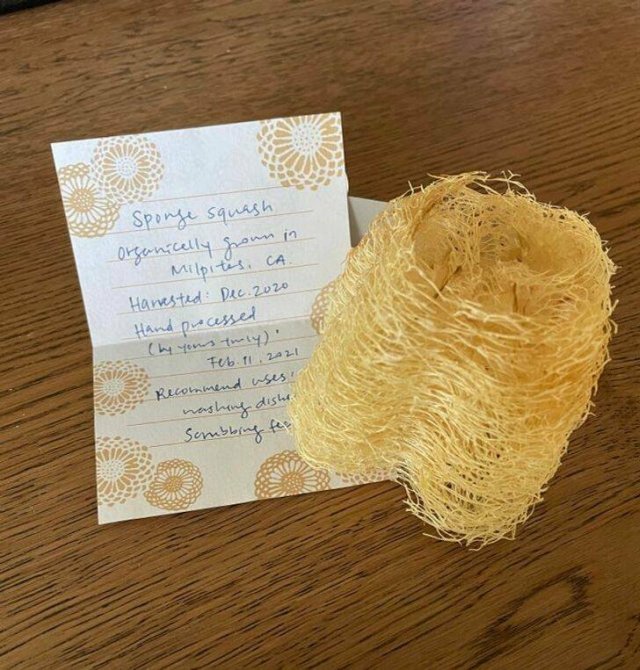 Sponge squash
Organically grown in
Milpitas, CA
Harvested: Dec. 2020
Hand processed
(by yours truly)
Feb. 11. 2021
Recommend uses:
washing
Scrubbing